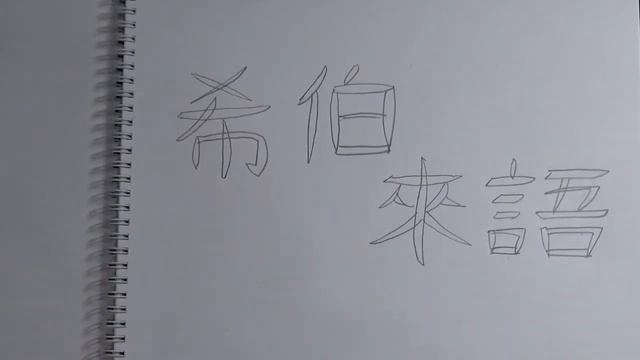 希伯
來語